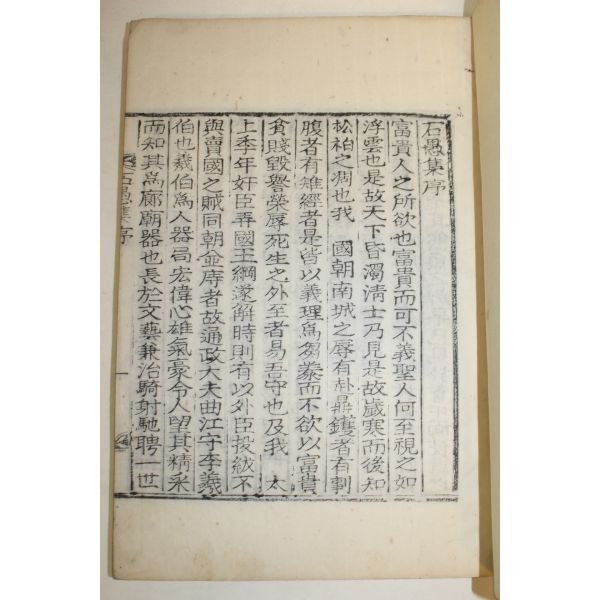 石愚集序
富貴人之所欲也富貴而可不義聖人何至視之如
浮雲也是故天下昏濁淸士乃見是故歲寒而後知
松柏之凋也我 國朝南城之辱有赴鼎鑊者有剚
腹者有雉經者是皆以義理爲芻豢而不欲以富貴
貧賤毀譽榮辱死生之外至者易吾守也及我 太
上季年奸臣弄國王綱遂解時則有以外臣投紱不
與賣國之賊同朝並庤者故通政大夫曲江守李義
伯也義伯爲人器局宏偉心雄氣豪令人望其精采
而知其爲廊廟器也長於文藝兼治騎射馳騁一世
石愚集序
一